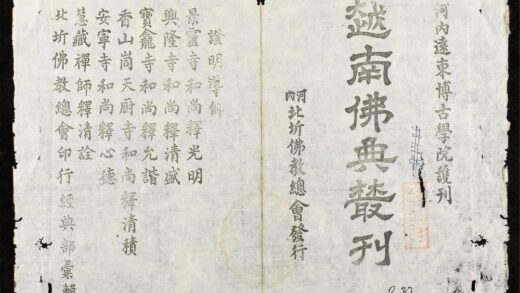 河內遠東博古學院護刊
越南佛典叢刊
河內北圻佛教總會發行
證明導師
景靈寺和尚釋光明
興隆寺和尚釋清盛
寶龕寺和尚釋允諧
香山崗天厨寺和尚釋清積
安寧寺和尚釋心德
慧藏禪師釋清詮
北圻佛教總會印行 經典部彙輯